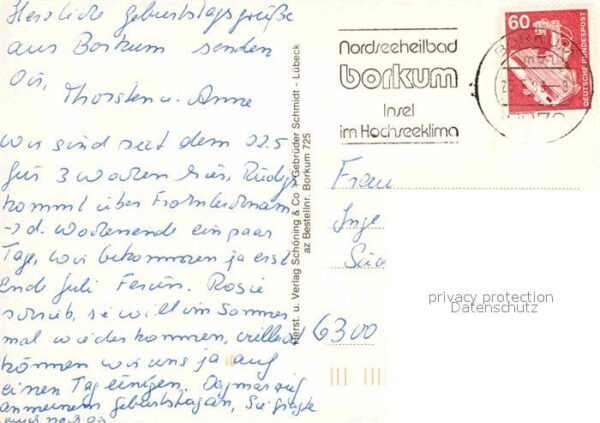 Herzliche Geburtstagsgrüße
aus Borkum senden
Dir, Thorsten u. Anne
Wir sind seit dem 22.5
für 3 Wochen hier, Rüdiger
kommt über Fronleichnam
→ d. Wochenende ein paar
Tage, wir bekommen ja erst
Ende Juli Ferien. Rosie
schrieb, sie will im Sommer
mal wieder kommen, vielleicht
können wir uns ja auf
einen Tag einigen. Dagmar rief
an meinem Geburtstag an, Sie
auch noch
Herst. u. Verlag Schöning & Co + Gebrüder Schmidt - Lübeck
az Bestellnr. Borkum 725
Nordseeheilbad
borkum
Insel
im Hochseeklima
60
DEUTSCHE BUNDESPOST
BORKUM
Frau
Inge
6300
privacy protection
Datenschutz